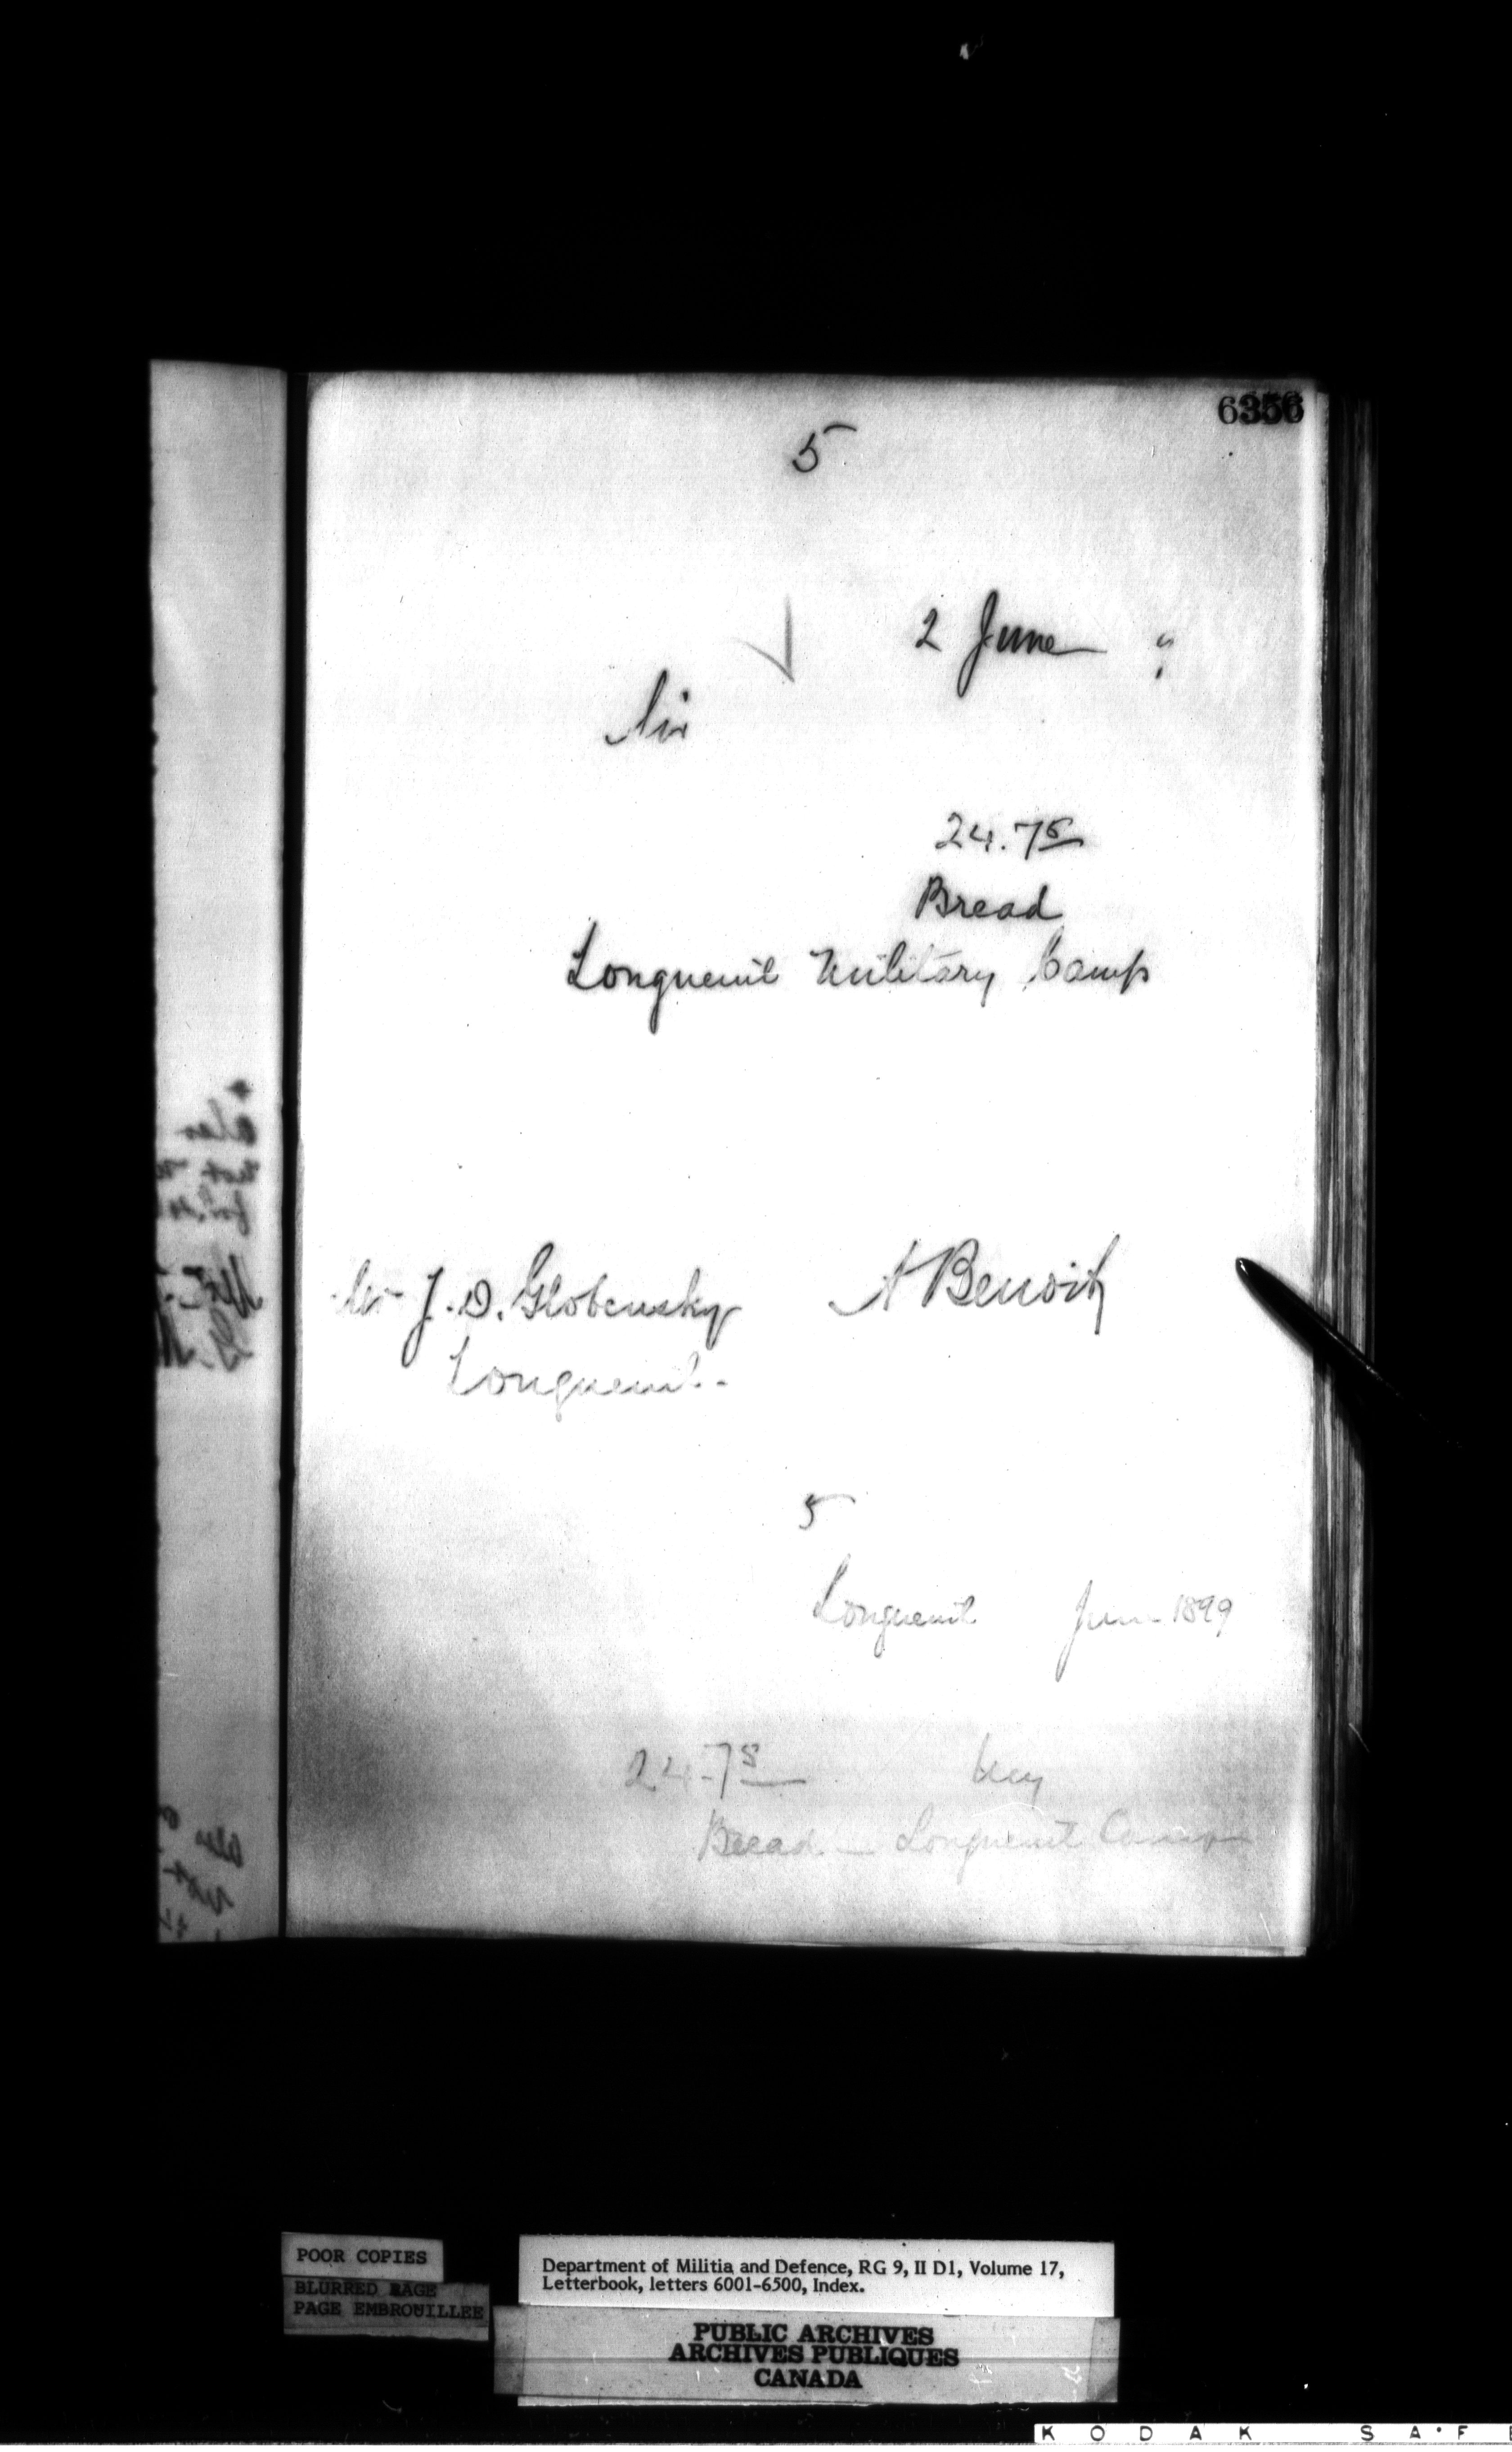 6356
5
2 June "
Sir
24.75
Bread
Longueuil Military Camp
Mr J. D. Globensky A Benoit
Longueuil.-
5
Longueuil June 1899
24.75
Bread - Longueuil Camp
POOR COPIES
BLURRED PAGE
PAGE EMBROUILLEE
Department of Militia and Defence, RG 9, II D1, Volume 17,
Letterbook, letters 6001-6500, Index.
PUBLIC ARCHIVES
ARCHIVES PUBLIQUES
CANADA
KODAK SAF